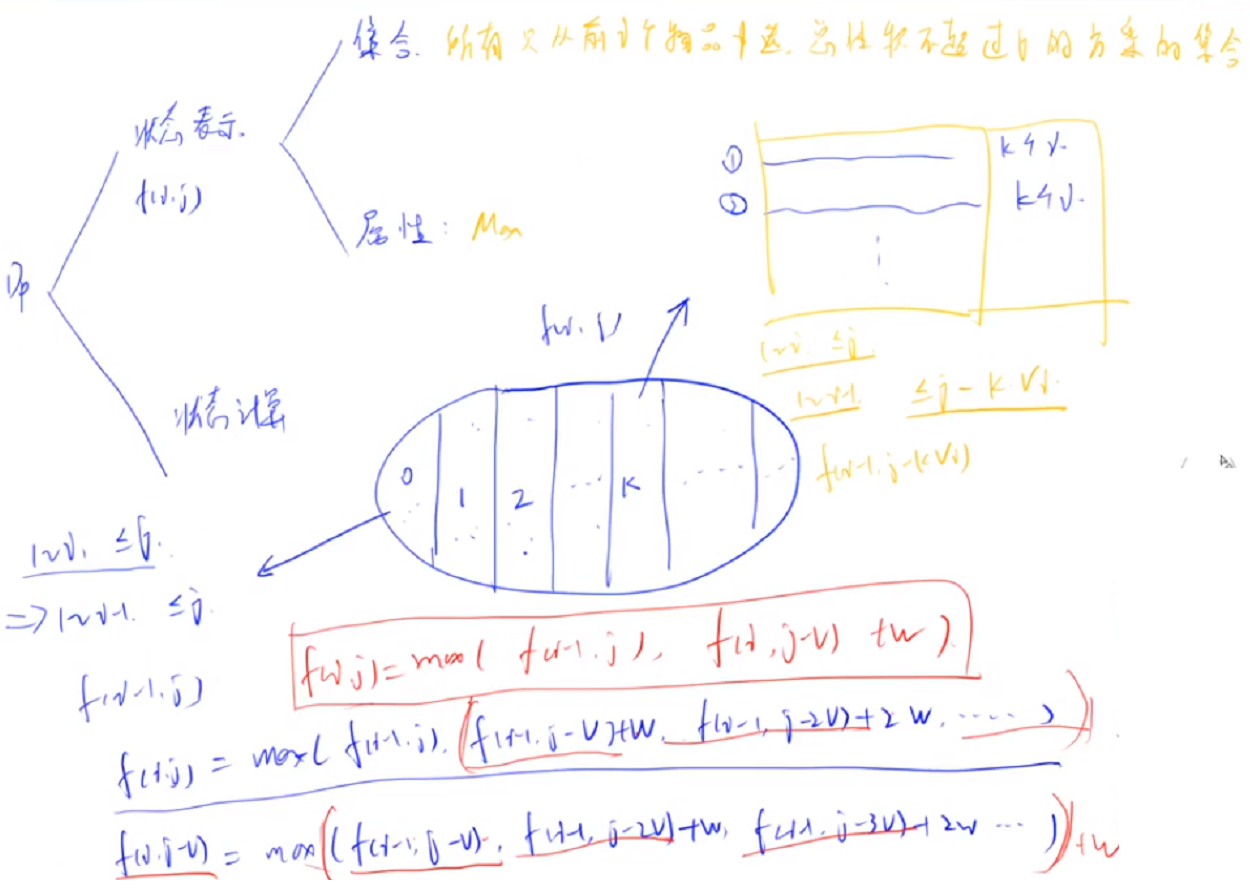 集合. 所有只从前i个物品中选, 总体积不超过j的方案的集合
状态表示.
f(i,j)
① k个i.
② k个i.
属性: Max
DP
f(i,j)
1~i ≤j
1~i-1 ≤j-k·Vi
f(i-1,j-kVi)
状态计算
0 1 2 ... k ......
1~i, ≤j.
=> 1~i-1. ≤j.
f(i-1,j)
f(i,j)=max( f(i-1,j), f(i,j-v)+w).
f(i,j) = max( f(i-1,j), (f(i-1,j-v)+w, f(i-1,j-2v)+2w, ...... ))
f(i,j-v) = max((f(i-1,j-v), f(i-1,j-2v)+w, f(i-1,j-3v)+2w ... ))+w